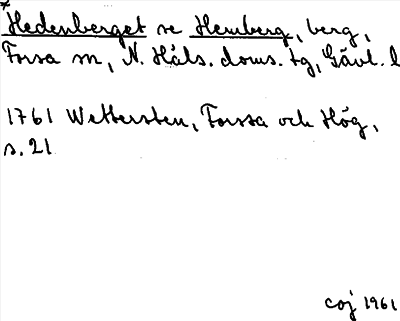 *Hedenberget se Hemberg, berg,
Forsa sn, N. Häls. doms. tg, Gävl. l
1761 Wettersten, Forssa och Hög,
s. 21
coj 1961